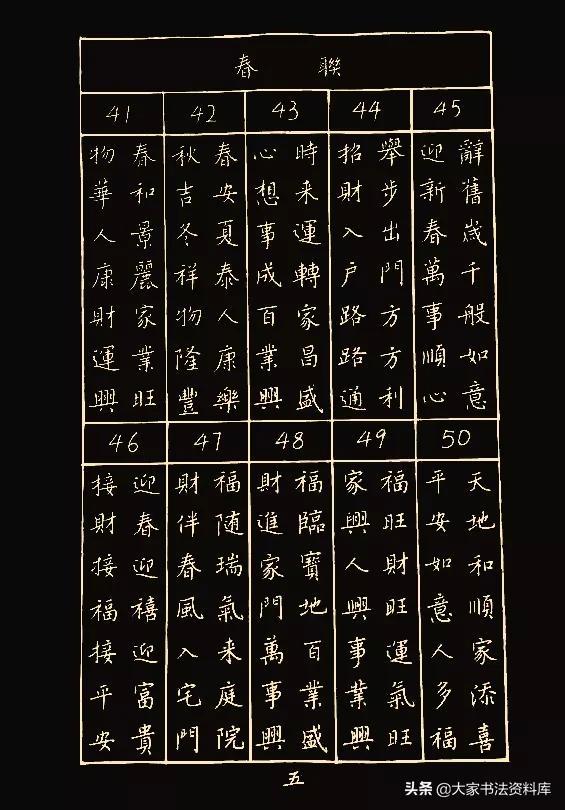 春聯
41
春和景麗家業旺
物華人康財運興
42
春安夏泰人康樂
秋吉冬祥物隆豐
43
時来運轉家昌盛
心想事成百業興
44
舉步出門方方利
招財入户路路通
45
辭舊歲千般如意
迎新春萬事順心
46
迎春迎禧迎富貴
接財接福接平安
47
福随瑞氣来庭院
財伴春風入宅門
48
福臨寶地百業盛
財進家門萬事興
49
福旺財旺運氣旺
家興人興事業興
50
天地和順家添喜
平安如意人多福
五
头条 @大家书法资料库